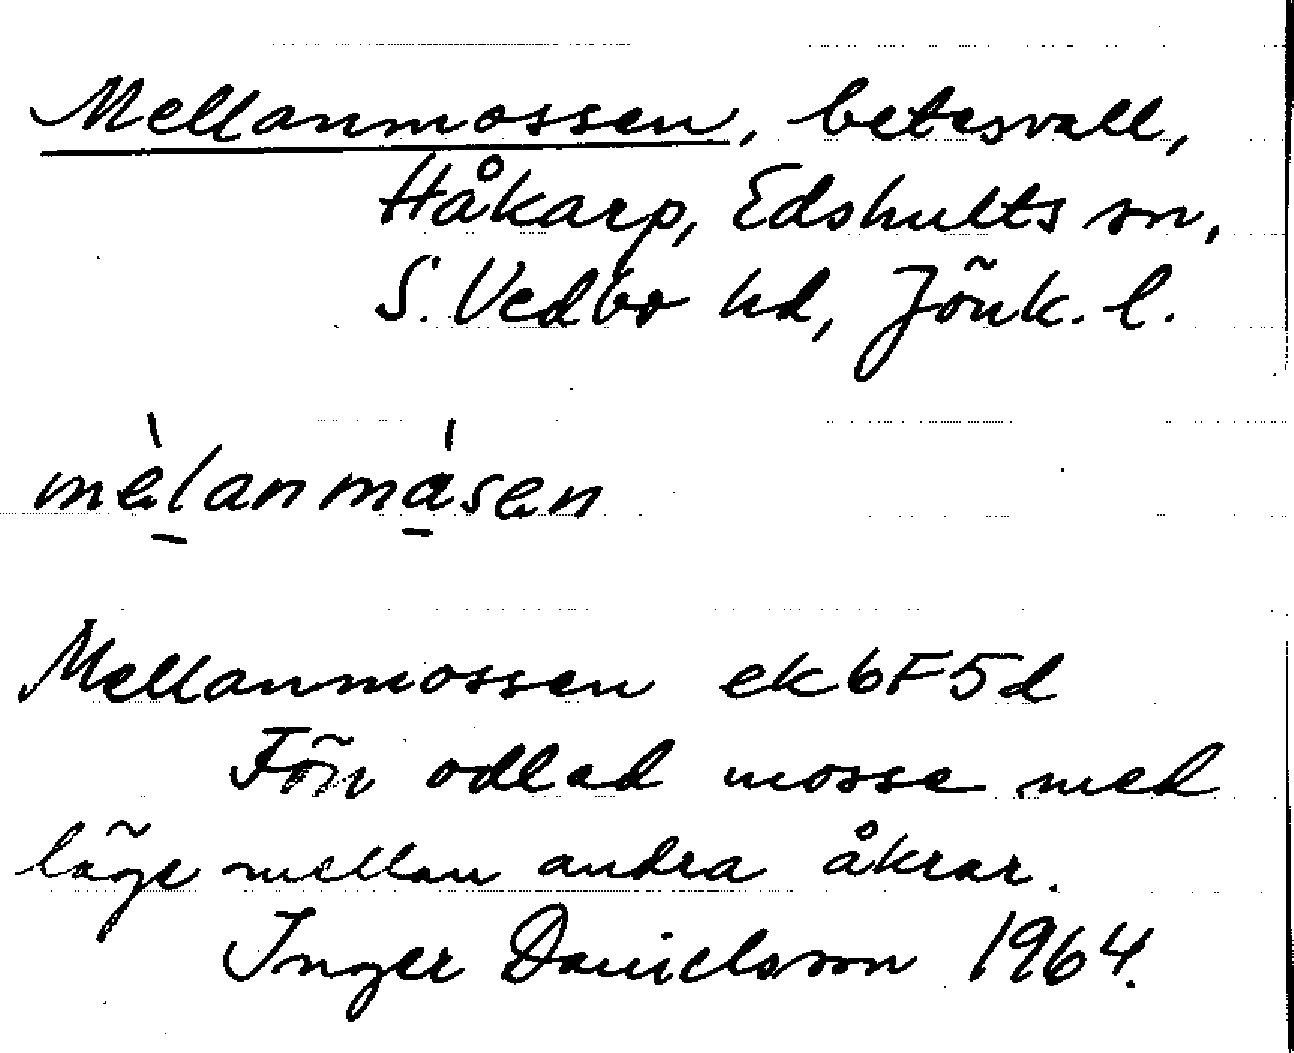 Mellanmossen, betesvall,
Håkarp, Edshults sn,
S. Vedbo hd, Jönk. l.
mèlanmásen
Mellanmossen ek 6F5d
Förr odlad mosse med
läge mellan andra åkrar.
Inger Danielsson 1964.